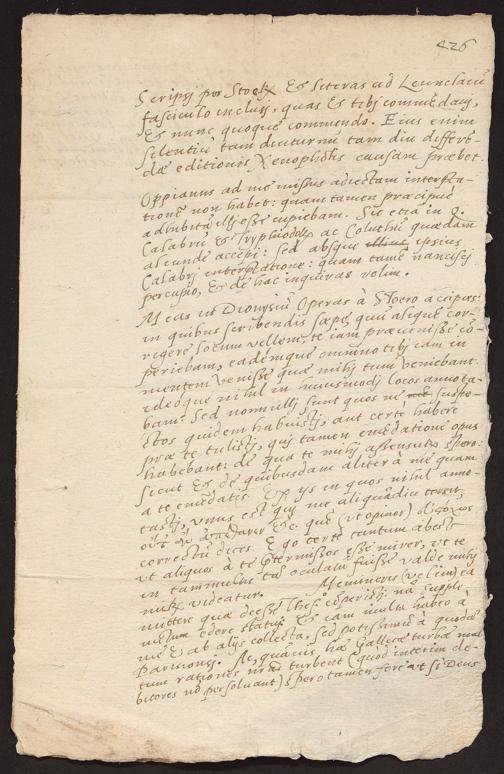 426
Scripsj per Stoer Et literas ad Leunclauiũ
fasciculo inclusj, quas Et tibj commẽdauj,
Et nunc quoque commendo. Eius enim
silentiũ tam diuturnũ tam diu differẽ-
dæ editionis Xenophõtis causam præbet.
Oppianus ad me missus adiectam interp̃ta-
tionẽ non habet: quam tamen præcipuè
adhibitã illj esse cupiebam. Sic etiã in Q.
Calabrũ & Tryphiodorũ ac Coluthũ quædam
alicunde accepi: sed absque illius ipsius
Calabrj interp̃tatione: quam tamẽ nanciscj
percupio, & de hac inquiras velim.
Meas in Dionysiũ Operas à Stoero accipies:
in quibus scribendis sæpe, qui aliquẽ cor-
rigere locum vellem, te iam præuenisse cõ-
periebam, eademque omnino tibj iam in
mentem venisse quæ mihj tum veniebant:
ideoque nihil in huiusmodj locos annota-
bam. Sed nonnullj sunt quos ne suspe-
ctos quidem habuistj, aut certè habere
præ te tulistj, quj tamen emẽdatione opus
habebant: de qua te mihj assensurũ spero:
sicut Et de quibusdam aliter à me quam
a te emẽdatis. Ex ijs in quos nihil anno-
tastj, vnus est
&c. quẽ (vt opinor)
correctũ dices. Ego certè tantum abest
vt aliquos à te p̃termissos esse mirer, vt te
in tam multis tã oculatũ fuisse valde mihj
mirũ videatur. Memineris (velim) ea
mittere quæ deesse Thes. cõperistj nã supple-
mentum edere statuj. Et iam multa habeo à
me & ab alijs collecta, sed potissimũ à quodã
Parisiensj. Ac, quãuis hæ Gallicæ turbæ mul
tum rationes nr̃as turbent (quod interim de-
bitores nõ persoluant) spero tamen fore vt si Deus